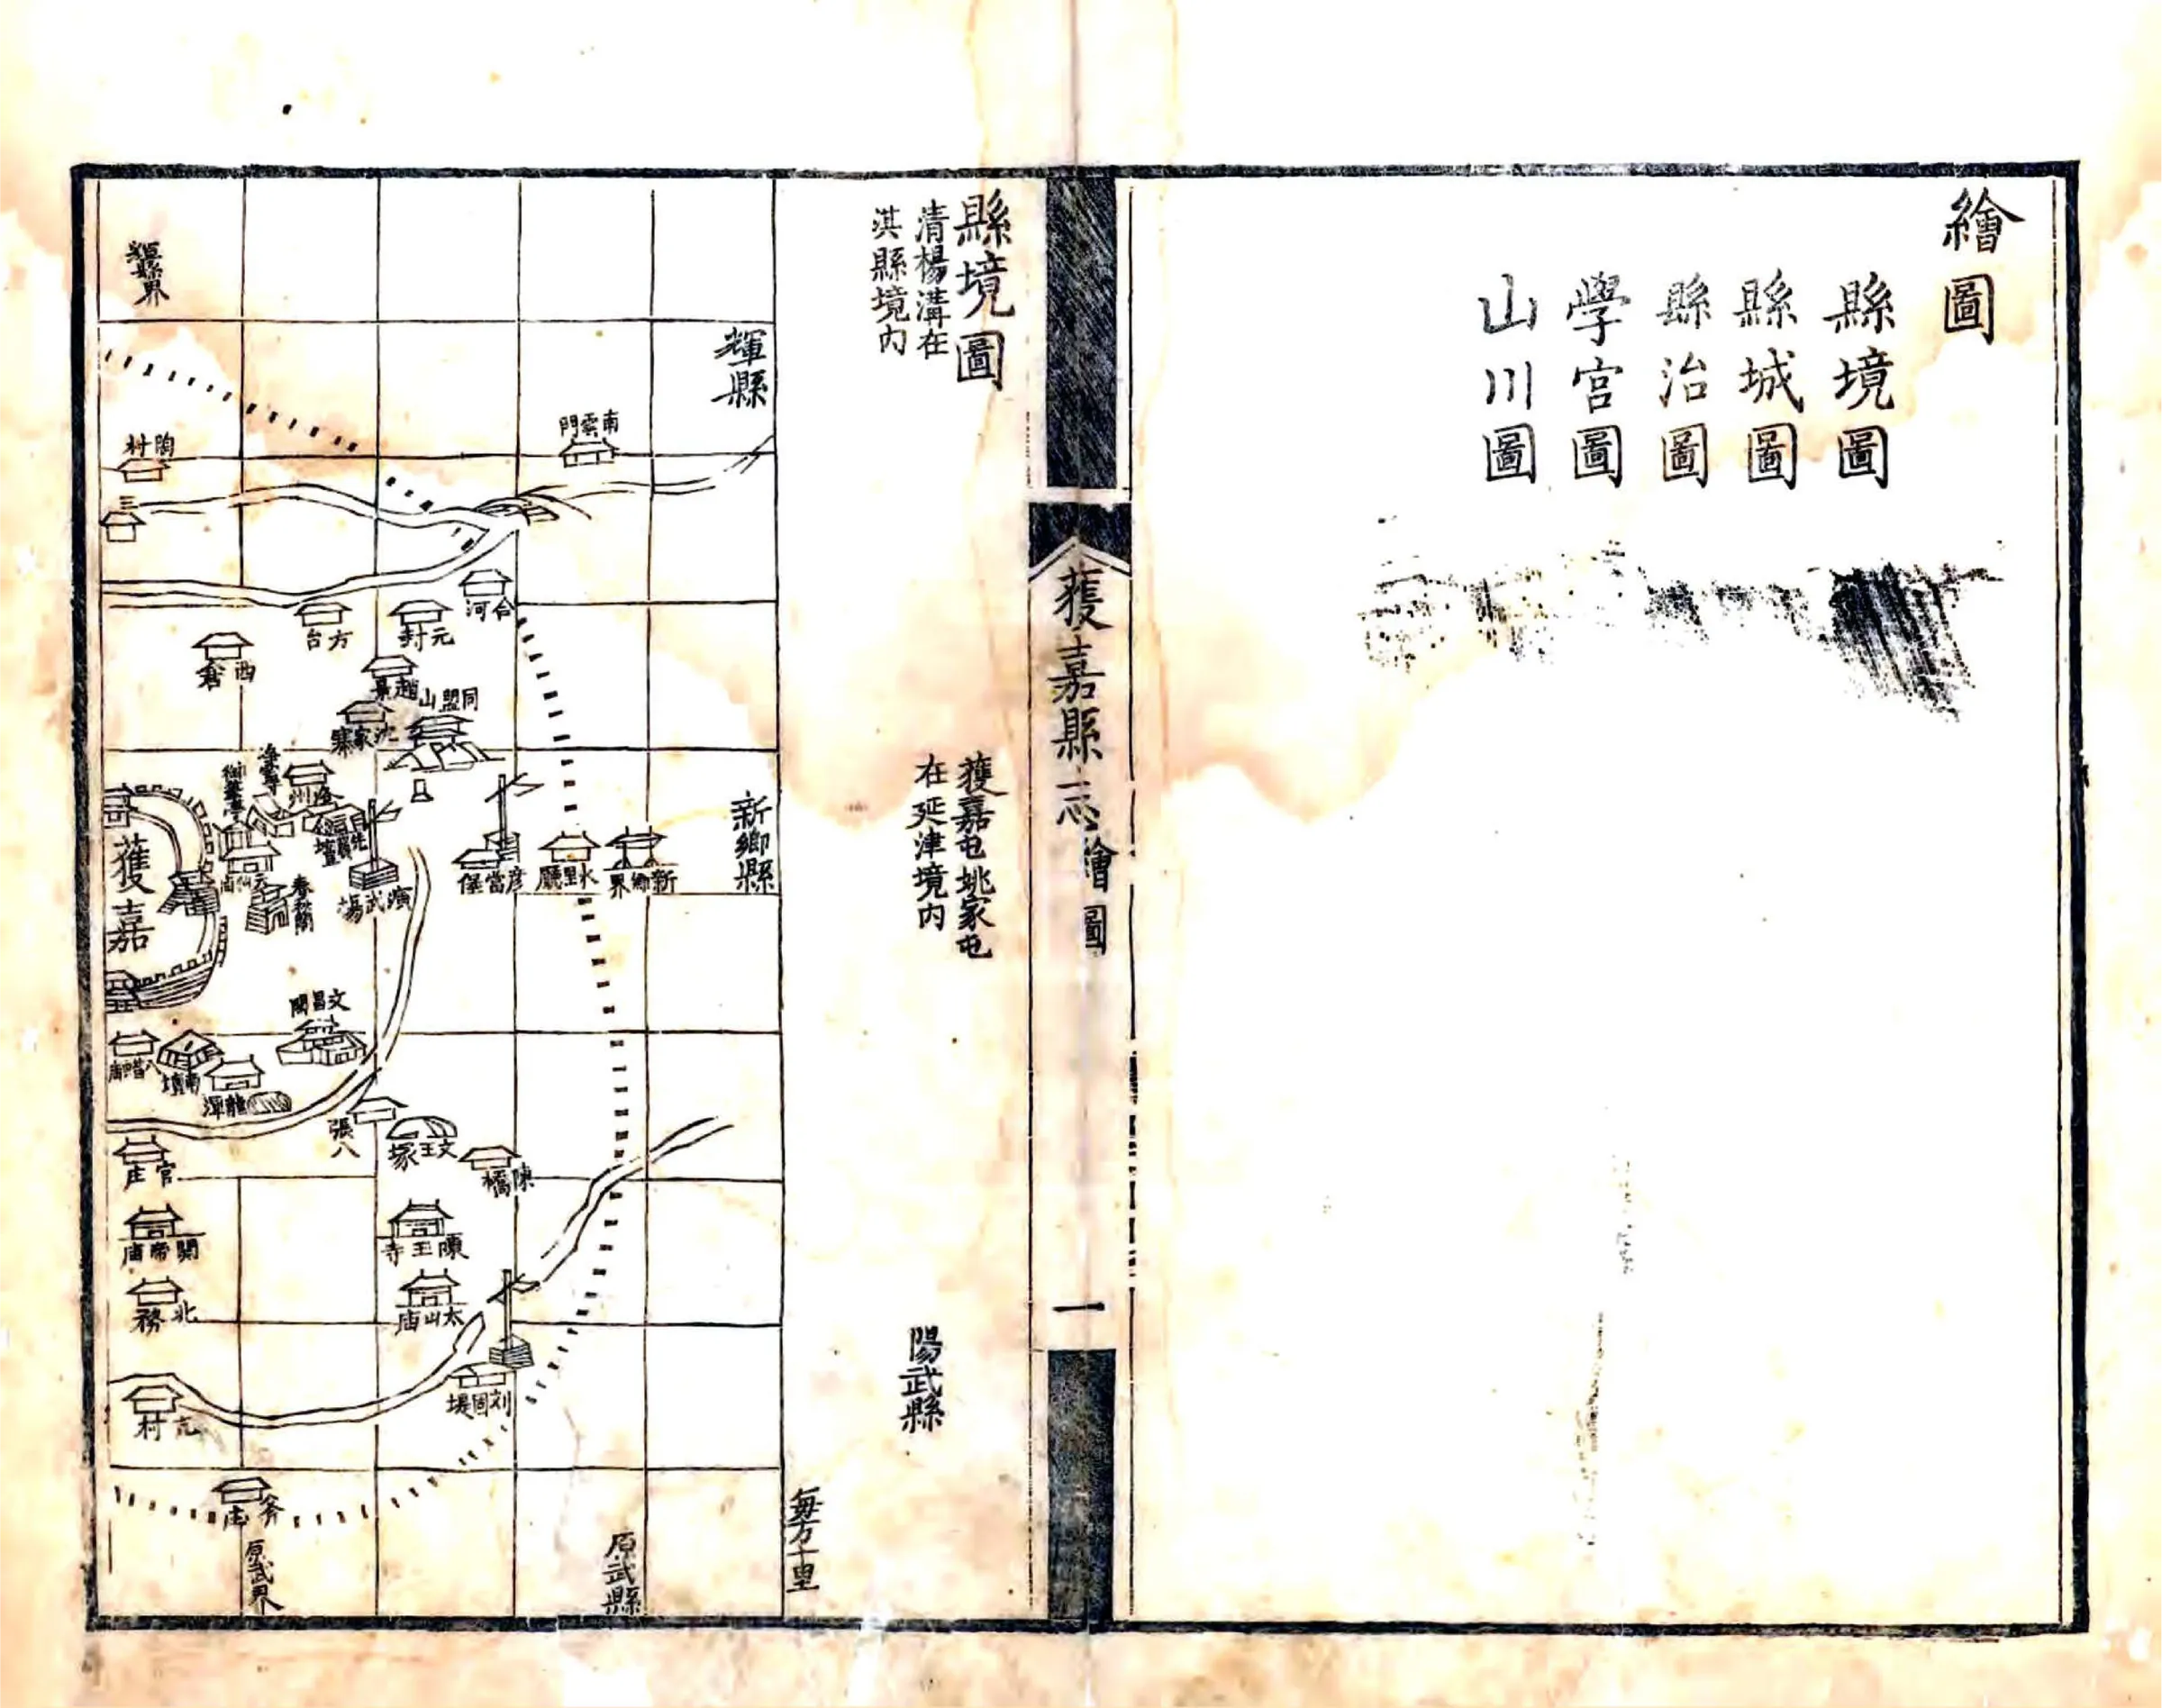 繪圖
縣境圖
縣城圖
縣治圖
學宮圖
山川圖
獲嘉縣志
繪圖
一
縣境圖
清楊溝在
淇縣境內
獲嘉屯姚家屯
在延津境內
陽武縣
每方十里
輝縣
新鄉縣
原武縣
原武界
輝縣界
南雲門
陶村
三
合河
元封
方台
西倉
趙景
同盟山
沈家寨
獲嘉
先農壇
演武場
春秋閣
彥當堡
水里廳
新鄉界
文昌閣
八蜡廟
南壇
龍潭
張八
文王冢
陳橋
官庄
關帝廟
陳王寺
北務
太山庙
刘固堤
亢村
斧庄